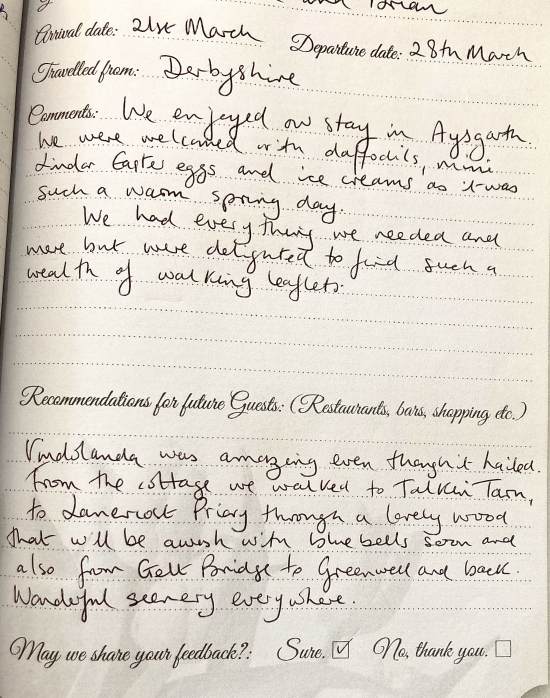 and Brian
Arrival date: 21st March Departure date: 28th March
Travelled from: Derbyshire
Comments: We enjoyed our stay in Aysgarth.
We were welcomed with daffodils, mini
Lindor Easter eggs and ice creams as it was
such a warm spring day.
We had everything we needed and
more but were delighted to find such a
wealth of walking leaflets.
Recommendations for future Guests: (Restaurants, bars, shopping etc.)
Vindolanda was amazing even though it hailed.
From the cottage we walked to Talkin Tarn,
to Lanercost Priory through a lovely wood
that will be awash with bluebells soon and
also from Gelt Bridge to Greenwell and back.
Wonderful scenery everywhere.
May we share your feedback?: Sure. ☑ No, thank you. ☐